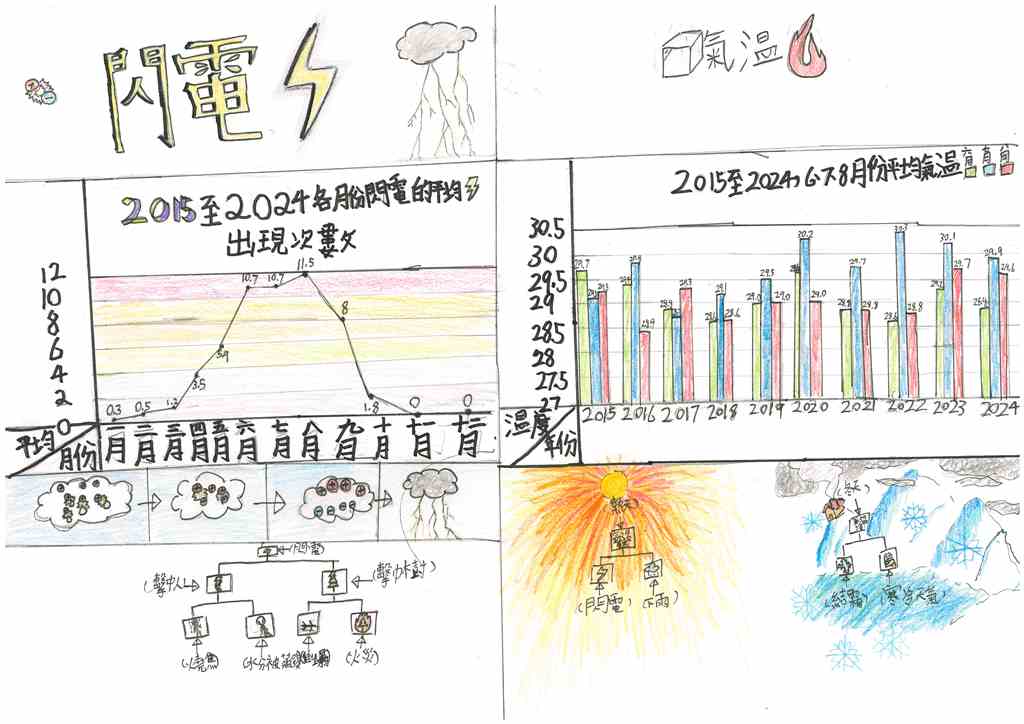 閃電
2015至2024各月份閃電的平均
出現次數
12
10
8
6
4
2
0
0.3
0.5
1.2
3.5
5.9
10.7
10.7
11.5
8
1.8
0
0
平均
月份
一月
二月
三月
四月
五月
六月
七月
八月
九月
十月
十一月
十二月
閃電
(擊中人)
(擊中樹)
(火災)
氣溫
2015至2024,6、7、8月份平均氣溫
30.5
30
29.5
29
28.5
28
27.5
27
29.7
28.9
29.3
28.6
29.1
28.6
29.0
29.5
29.0
30.2
29.0
28.8
29.7
28.8
28.6
30.5
28.8
30.1
29.7
28.9
29.9
29.6
溫度
年份
2015
2016
2017
2018
2019
2020
2021
2022
2023
2024
(閃電)
(下雨)
(冬天)
(結霜)
(寒冷天氣)